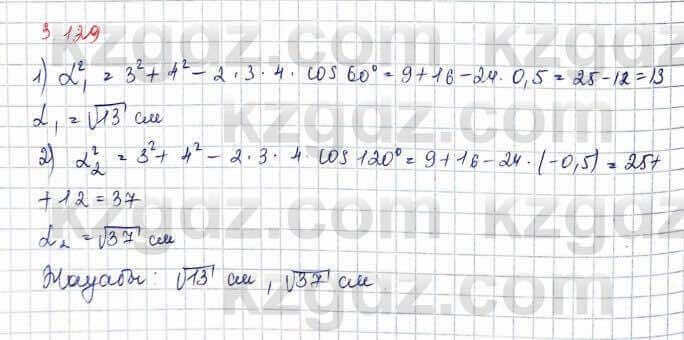 3.139
1) d₁² = 3² + 4² - 2·3·4·cos 60° = 9+16-24·0,5 = 25-12=13
d₁ = √13 см
2) d₂² = 3² + 4² - 2·3·4·cos 120° = 9+16-24·(-0,5) = 25+
+12 = 37
d₂ = √37 см
Жауабы: √13 см, √37 см.
kzgdz.com
kzgdz.com
kzgdz.com